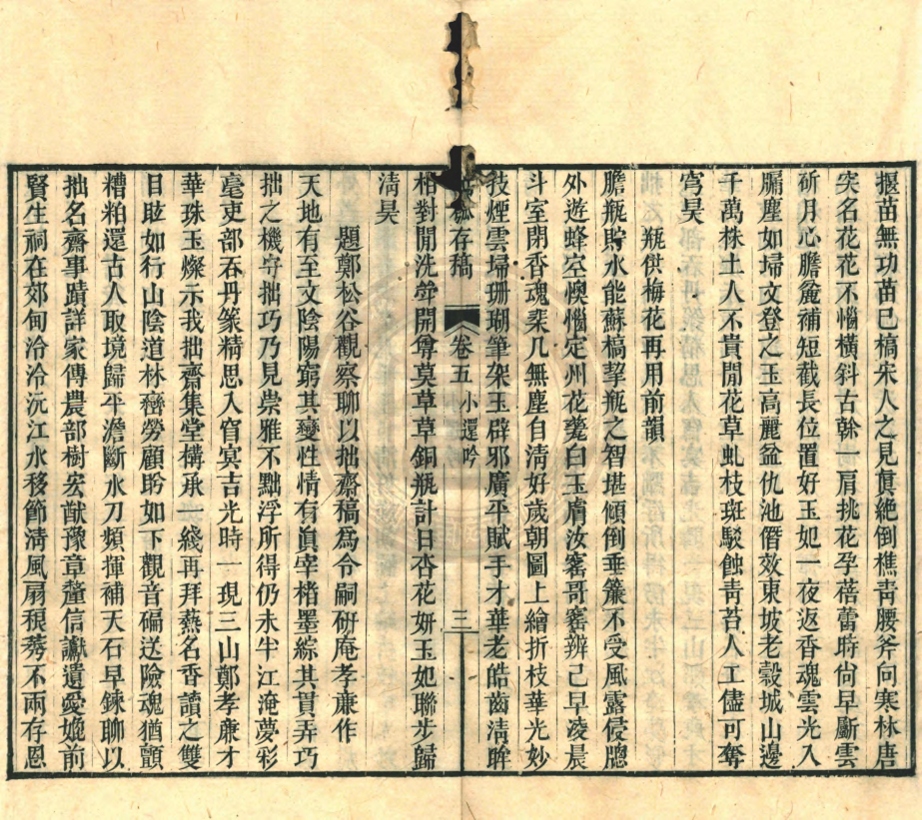 揠苗無功苗已槁宋人之見眞絶倒樵青腰斧向寒林唐
突名花花不惱橫斜古榦一肩挑花孕蓓蕾時尙早斸雲
斫月心膽麄補短截長位置好玉妃一夜返香魂雲光入
牖塵如埽文登之玉高麗盆仇池僭效東坡老穀城山邊
千萬株土人不貴閒花草虬枝斑駁蝕靑苔人工儘可奪
穹昊
瓶供梅花再用前韻
膽瓶貯水能蘇槁挈瓶之智堪傾倒垂簾不受風露侵牕
外遊蜂空懊惱定州花甕白玉膚汝窰哥窰辨已早凌晨
斗室閉香魂棐几無塵自淸好歲朝圖上繪折枝華光妙
技煙雲埽珊瑚筆架玉辟邪廣平賦手才華老皓齒淸眸
存稿 卷五 小還吟 三
相對閒洗斝開尊莫草草銅瓶計日杏花妍玉妃聯步歸
淸昊
題鄭松谷觀察聊以拙齋稿爲令嗣硏庵孝亷作
天地有至文陰陽窮其變性情有眞宰楮墨綜其貫弄巧
拙之機守拙巧乃見崇雅不黜浮所得仍未半江淹夢彩
毫吏部吞丹篆精思入窅冥吉光時一現三山鄭孝亷才
華珠玉燦示我拙齋集堂構承一綫再拜爇名香讀之雙
目眩如行山陰道林壑勞顧盻如下觀音碥送險魂猶顫
糟粕還古人取境歸平澹斷水刀頻揮補天石早鍊聊以
拙名齋事蹟詳家傳農部樹宏猷豫章釐信讞遺愛娩前
賢生祠在郊甸泠泠沅江水移節淸風扇稂莠不兩存恩